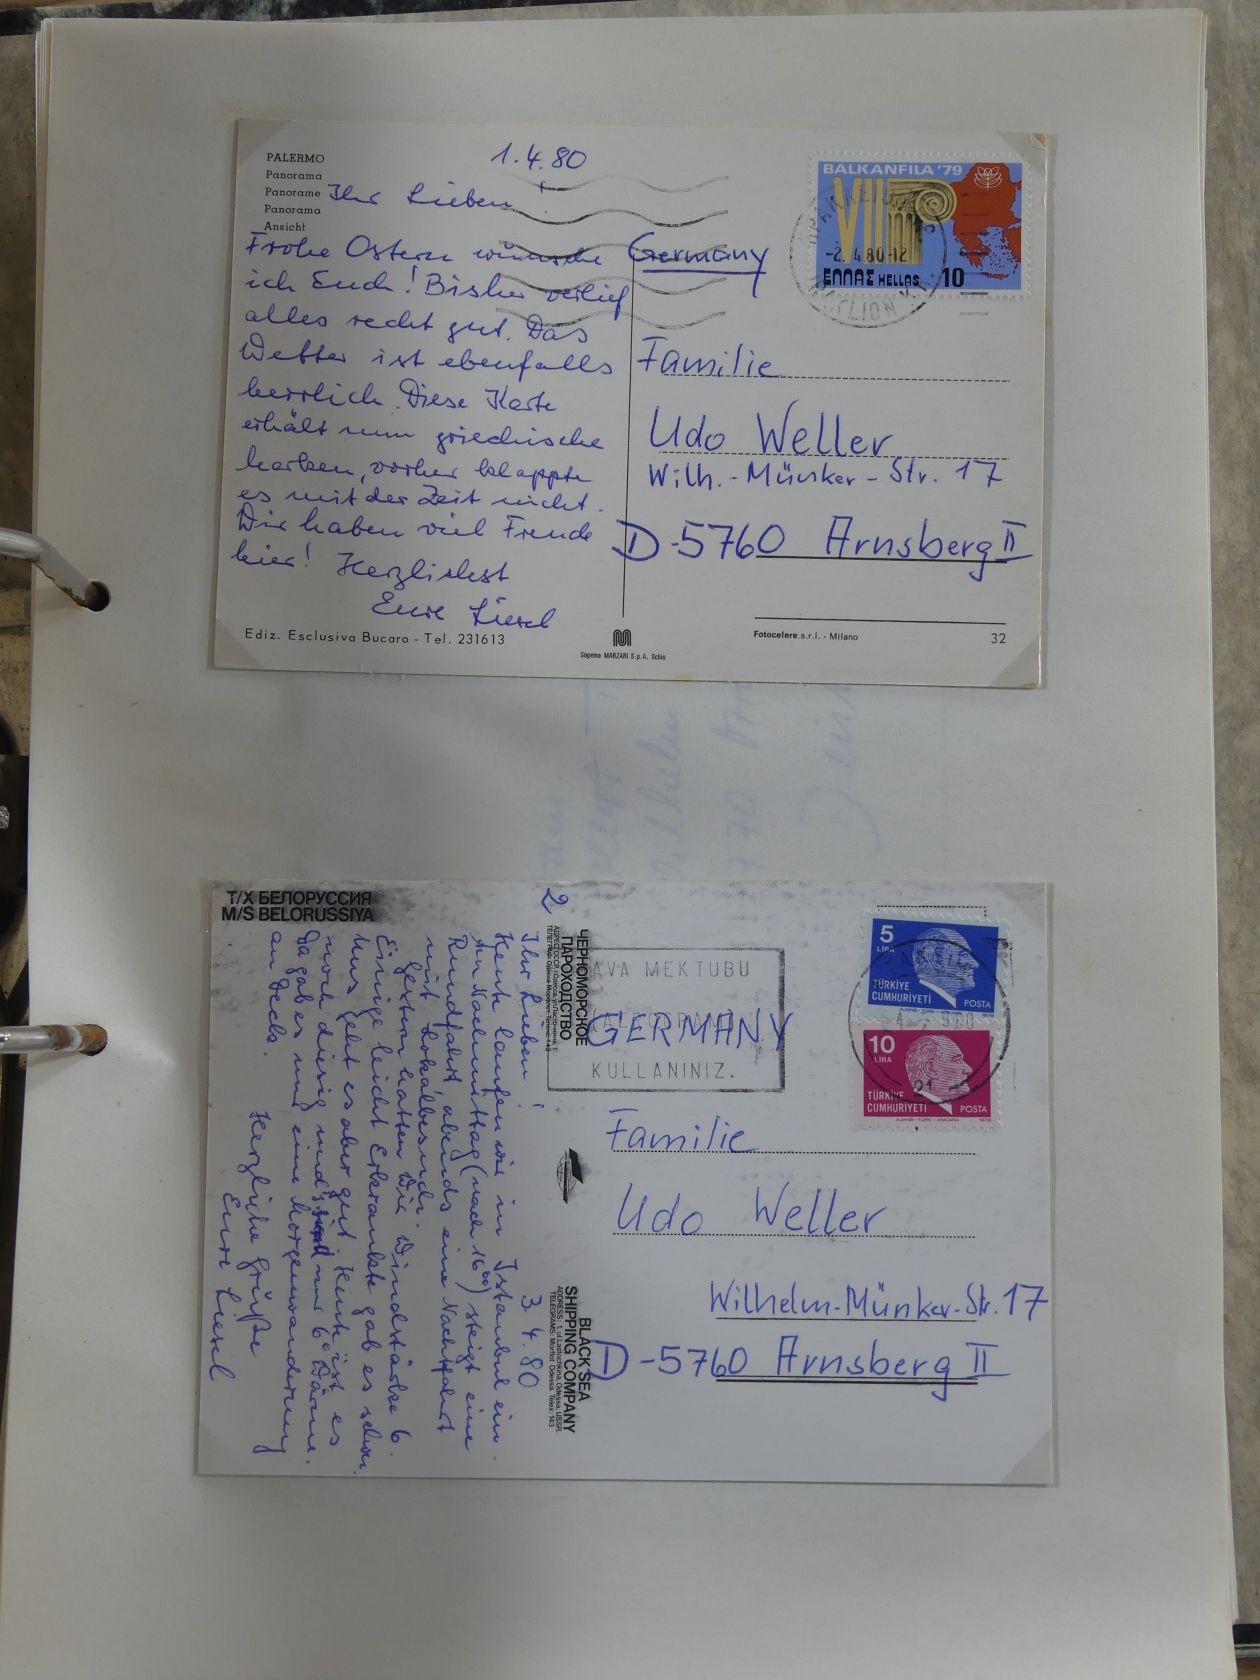 PALERMO
Panorama
Panorame
Panorama
Ansicht
1.4.80
Ihr Lieben!
Frohe Ostern wünsche
ich Euch! Bisher verlief
alles recht gut. Das
Wetter ist ebenfalls
herrlich. Diese Karte
erhält nun griechische
Marken, vorher klappte
es mit der Zeit nicht.
Wir haben viel Freude
hier! Herzlichst
Eure Liesel
Ediz. Esclusiva Bucaro - Tel. 231613
Sogema MARZARI S.p.A. Schio
BALKANFILA '79
VIII
ΕΛΛΑΣ HELLAS 10
-2.4.80-12
Germany
Familie
Udo Weller
Wilh.-Münker-Str. 17
D-5760 Arnsberg II
Fotocelere s.r.l. - Milano
32
Т/Х БЕЛОРУССИЯ
M/S BELORUSSIYA
2
3.4.80
Ihr Lieben!
Heute laufen wir in Istanbul ein.
Am Nachmittag (nach 16⁰⁰) steigt eine
Rundfahrt, abends eine Nachtfahrt
mit Lokalbesuch.
Gestern hatten wir Windstärke 6.
Einige leicht Erkrankte gab es schon.
Uns geht es aber gut. Heute ist es
noch diesig und nur 6° Wärme.
Da gab es nur eine Morgenwanderung
an Deck.
Herzliche Grüße
Eure Liesel
ЧЕРНОМОРСКОЕ
ПАРОХОДСТВО
BLACK SEA
SHIPPING COMPANY
AVA MEKTUBU
KULLANINIZ.
5
LİRA
TÜRKİYE
CUMHURİYETİ
POSTA
10
LİRA
TÜRKİYE
CUMHURİYETİ
POSTA
21
GERMANY
Familie
Udo Weller
Wilhelm-Münker-Str. 17
D-5760 Arnsberg II